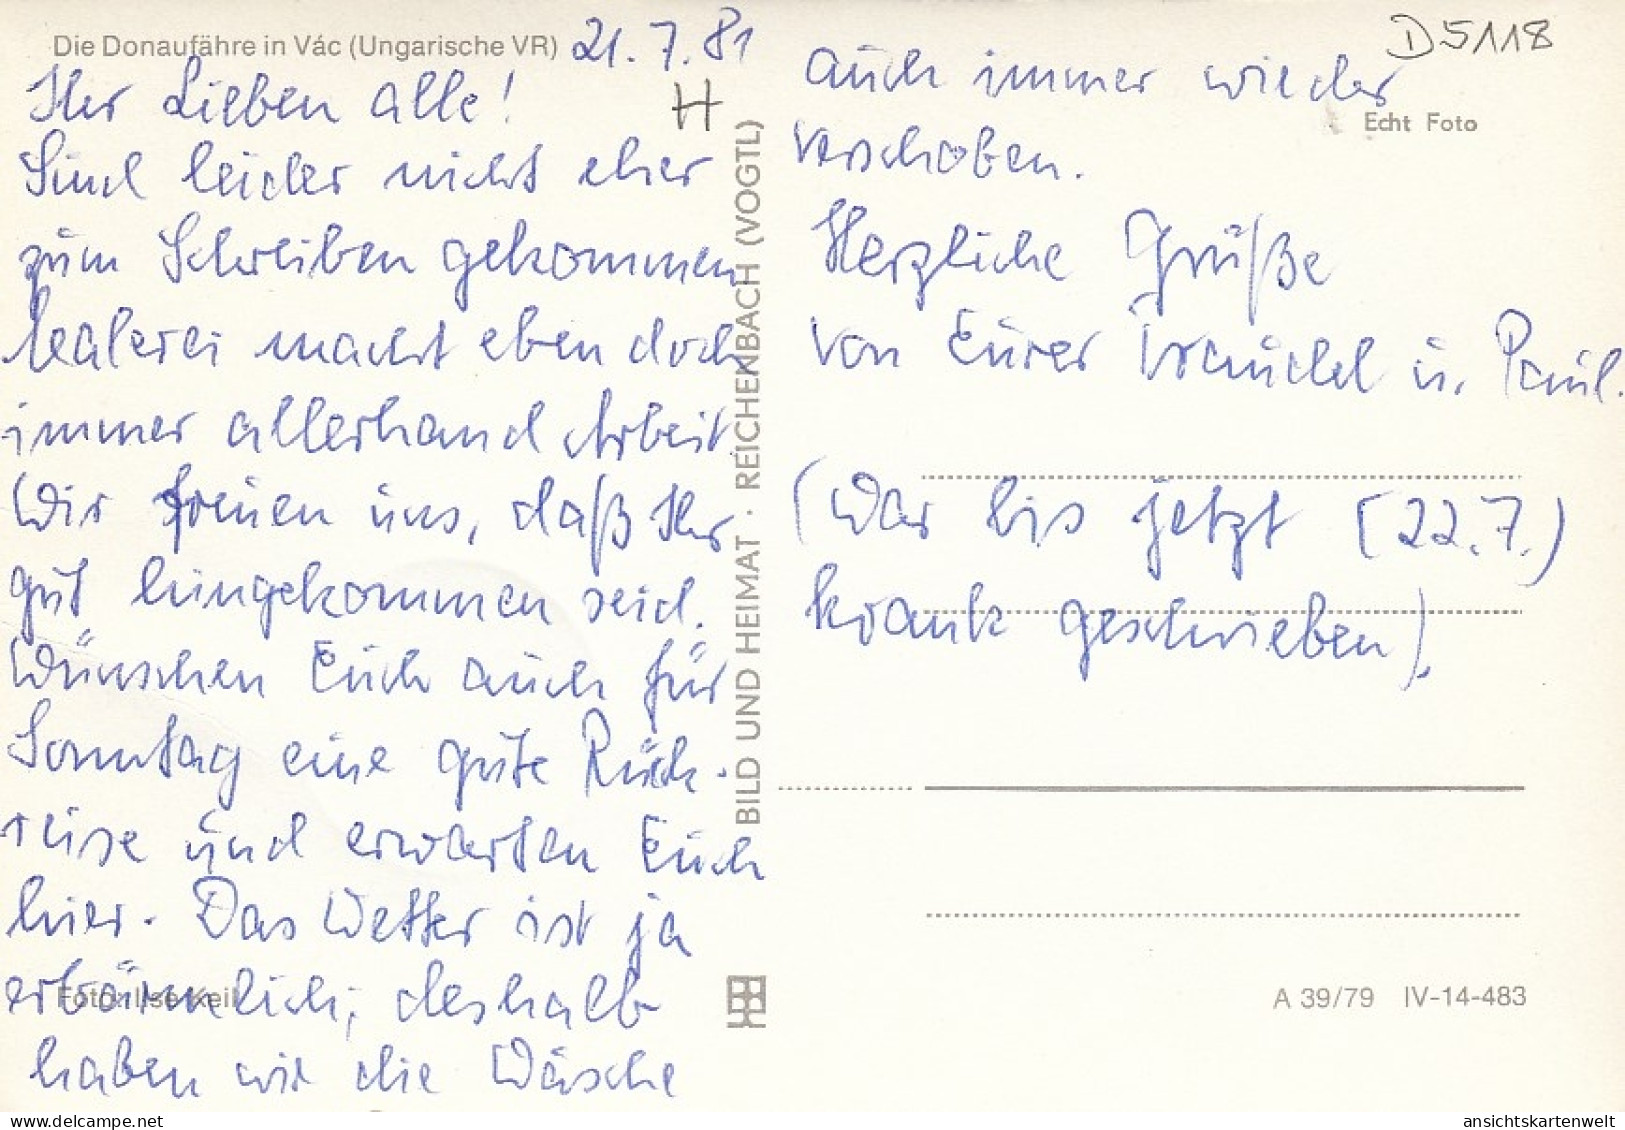 Die Donaufähre in Vác (Ungarische VR) 21.7.81
H
Ihr Lieben alle!
Sind leider nicht eher
zum Schreiben gekommen
Malerei macht eben doch
immer allerhand Arbeit.
Wir freuen uns, daß Ihr
gut hingekommen seid.
Wünschen Euch auch für
Sonntag eine gute Rück-
reise und erwarten Euch
hier. Das Wetter ist ja
erbärmlich, deshalb
haben wir die Wäsche
Foto: Ilse Keil
BILD UND HEIMAT · REICHENBACH (VOGTL)
D5118
Echt Foto
auch immer wieder
verschoben.
Herzliche Grüße
von Eurer Traudel u. Paul.
(War bis jetzt (22.7.)
krank geschrieben).
A 39/79 IV-14-483
ansichtskartenwelt